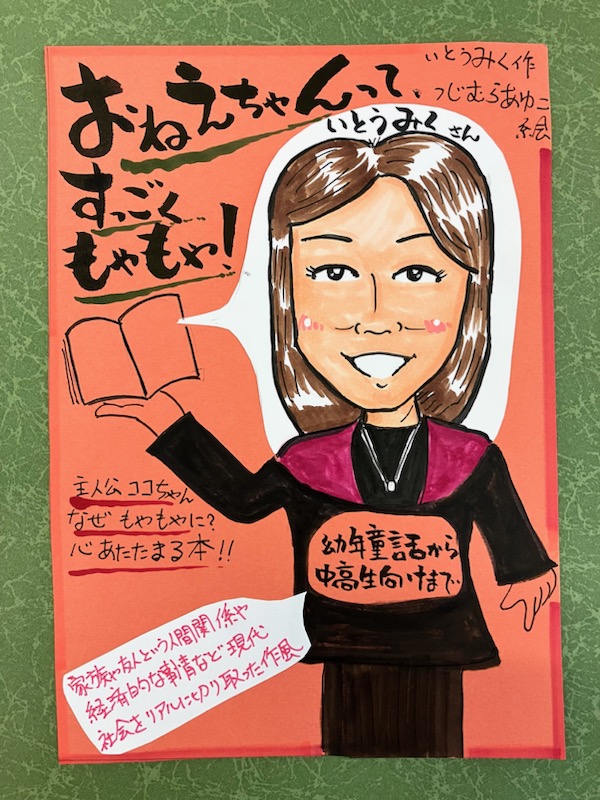 おねえちゃんって、
すっごく
もやもや!
いとうみく作
つじむらあゆこ
絵
いとうみくさん
主人公ココちゃん
なぜもやもやに?
心あたたまる本!!
幼年童話から
中高生向けまで
家族や友人という人間関係や
経済的な事情など現代
社会をリアルに切り取った作風